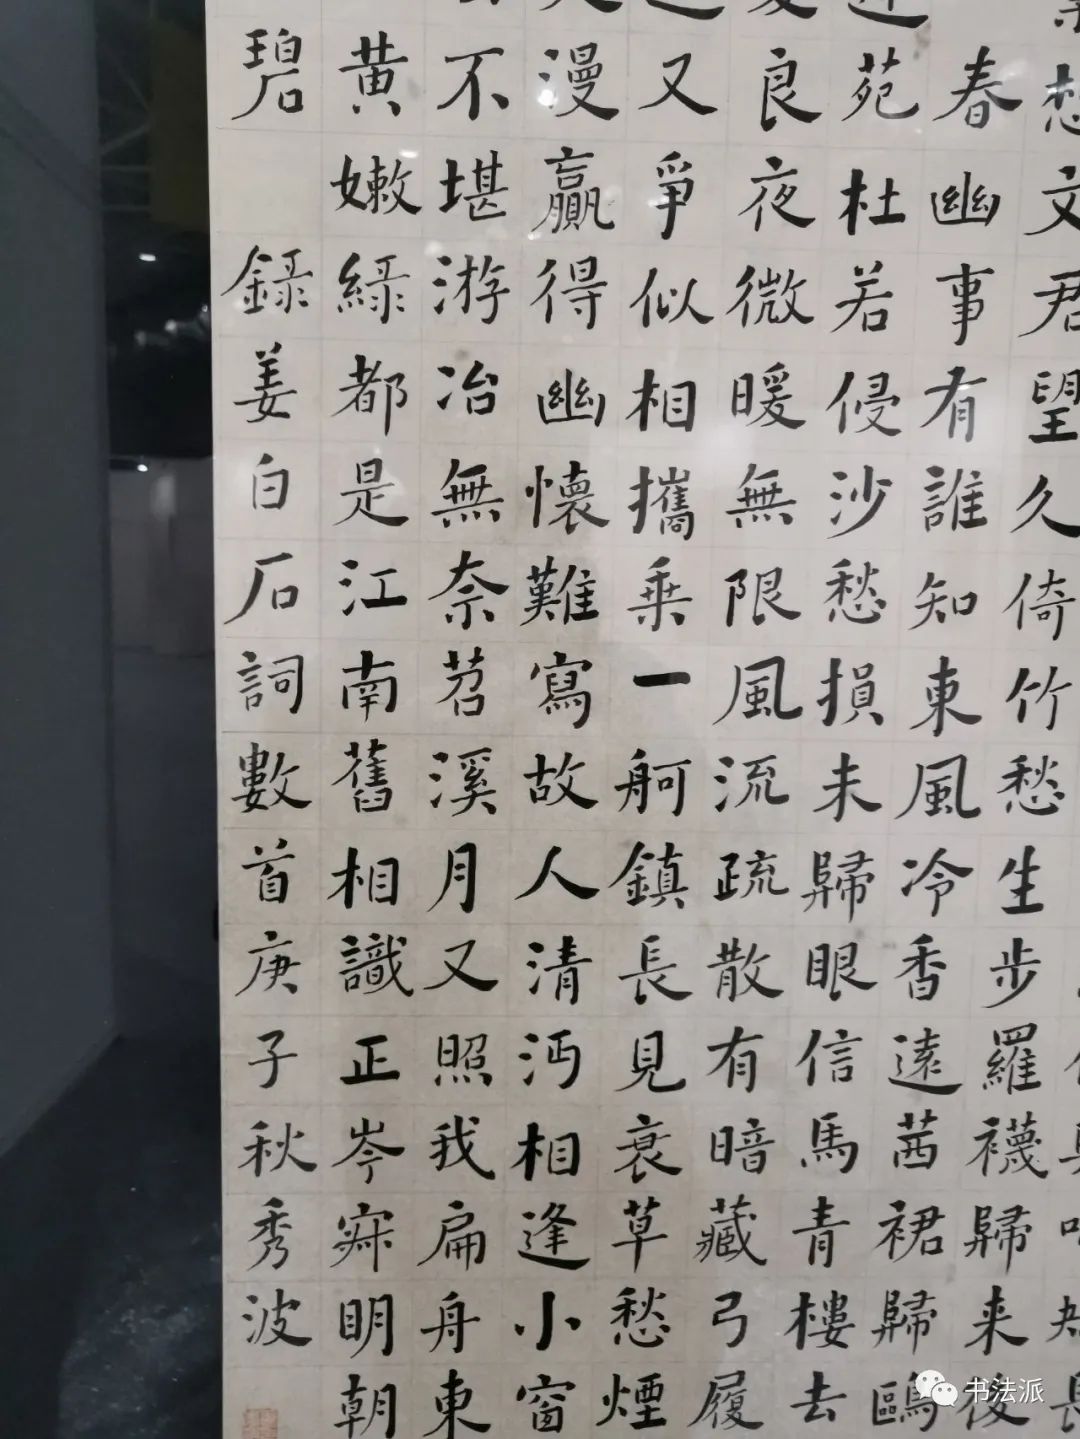 想文君望久倚竹愁生步羅襪歸来後
春幽事有誰知東風冷香遠茜裙歸鷗
苑杜若侵沙愁損未歸眼信馬青樓去
良夜微暖無限風流疏散有暗藏弓履
又爭似相攜乗一舸鎮長見衰草愁煙
漫贏得幽懷難寫故人清沔相逢小窗
不堪游冶無奈苕溪月又照我扁舟東
黄嫩綠都是江南舊相識正岑寂明朝
碧 錄姜白石詞數首庚子秋秀波
书法派